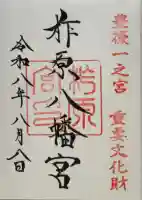 豊後一之宮 重要文化財
柞原八幡宮
令和八年八月八日